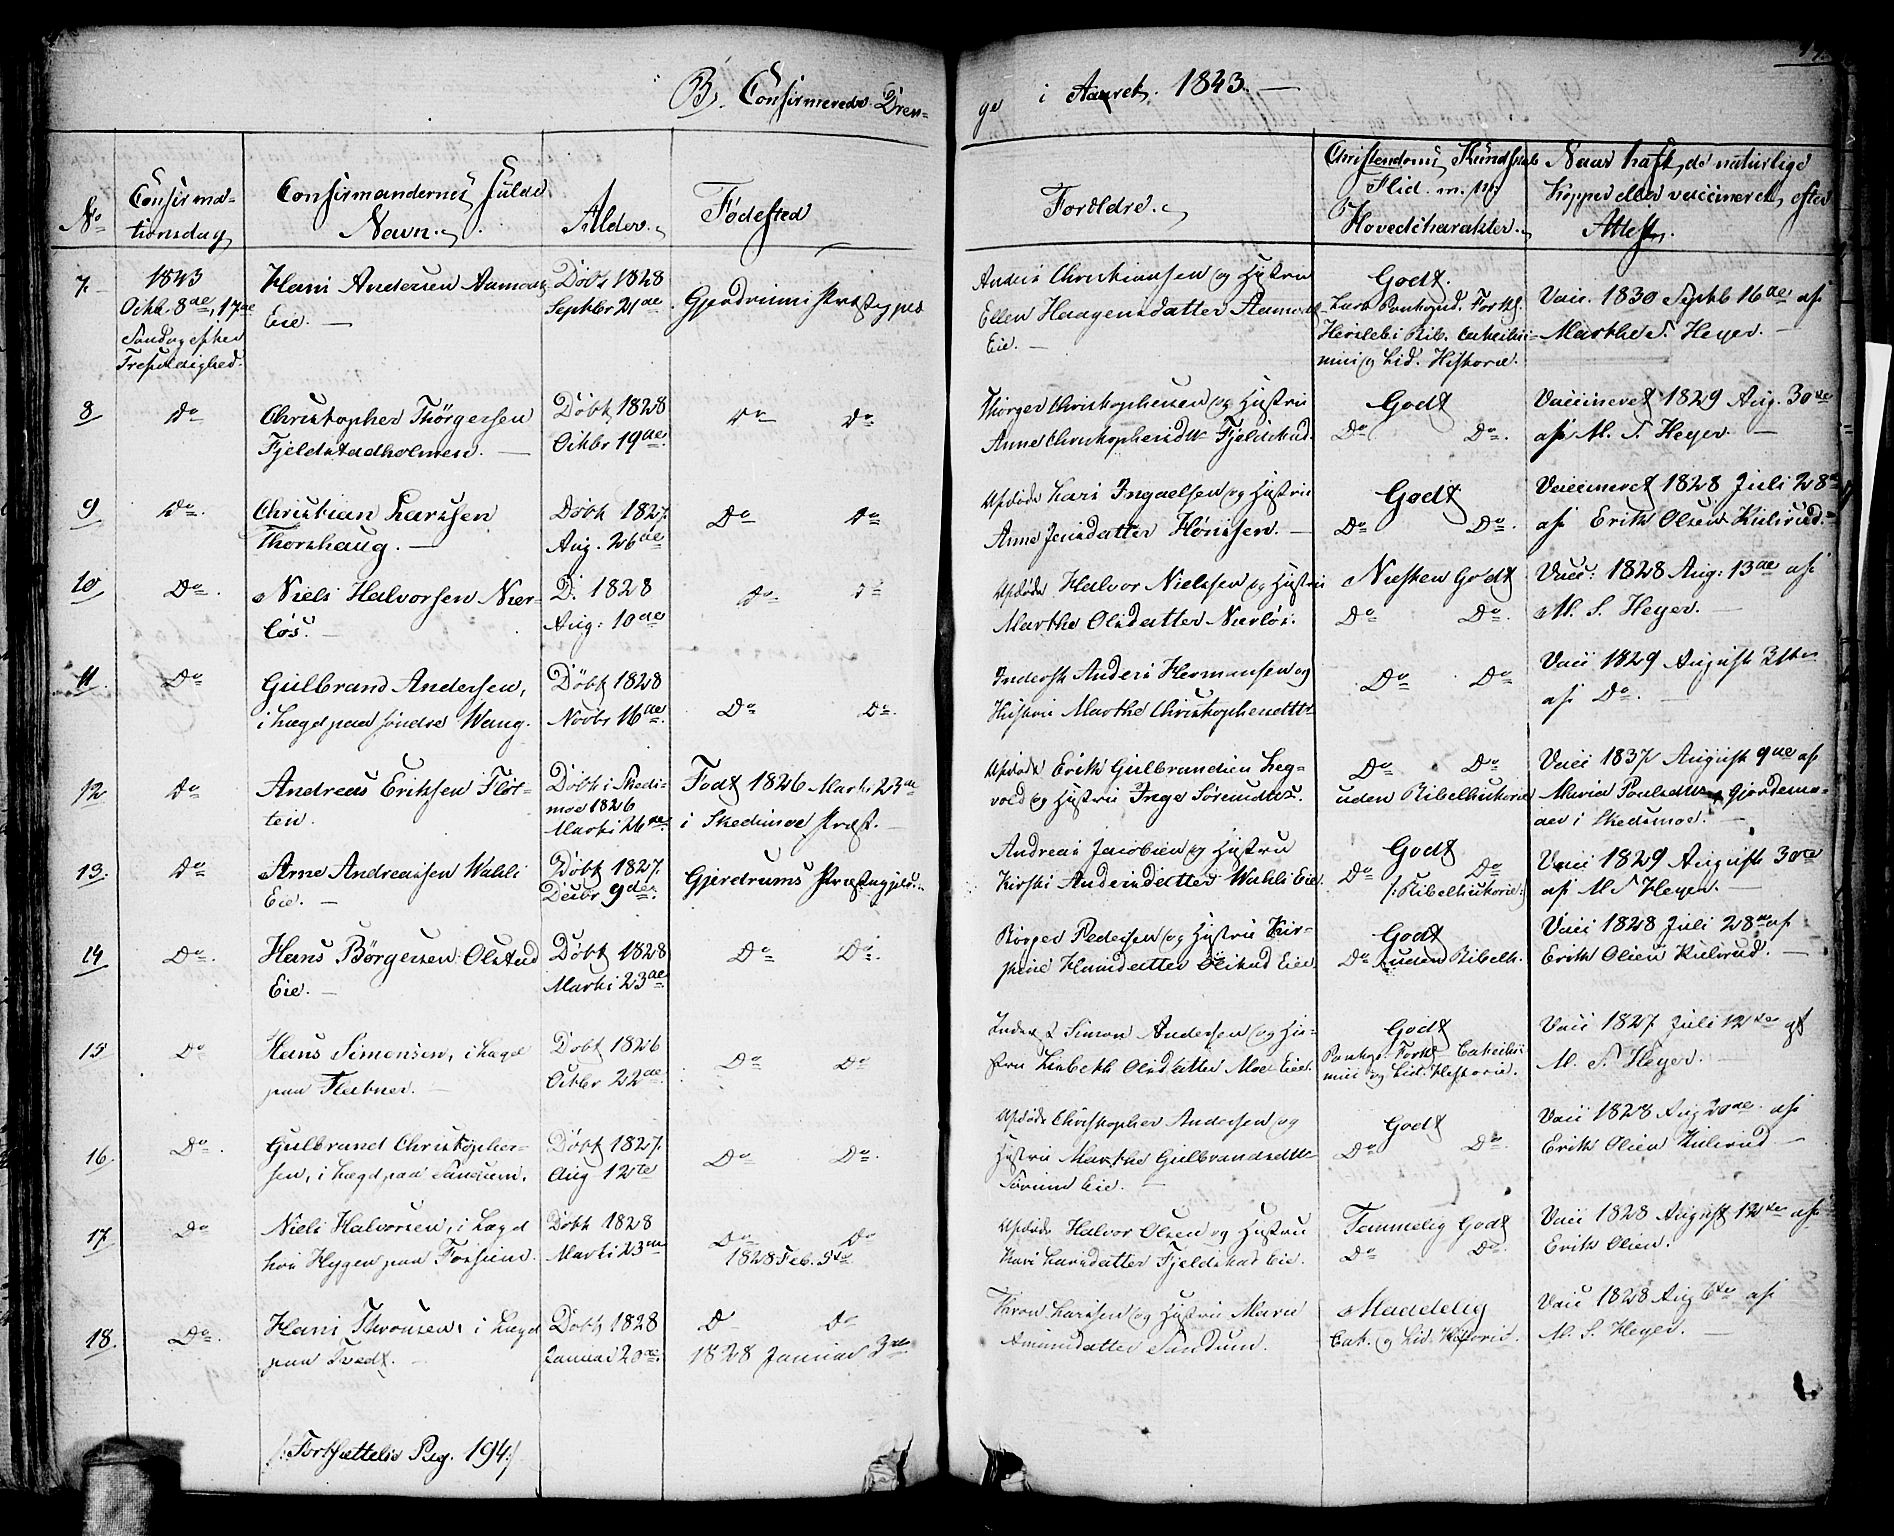 B. Confirmerede Dren-
ge i Aaret 1843.
No
Confirma-
tionsdag
Confirmandernes fulde
Navn.
Alder.
Fødested
Forældre.
Christendoms Kundskab
Flid m. m.
Hovedcharakter.
Naar havt de naturlige
Kopper eller vaccineret, efter
Attest.
7.
1843
Octbr. 8de, 17de
Søndag efter
Trefoldighed.
Hans Andersen Aamodt
Eie.
Døbt 1828
Septbr 21de
Gjerdrums Præstegjeld
Anders Christiansen og Hustru
Ellen Haagensdatter Aamodt
Eie.
Godt.
Pontopid. Forkl.
Herslebs Bib. Catechis-
mus og Lid. Historie.
Vacc. 1830 Septb 16de af
Marthe S. Heyer.
8
Do
Christopher Thørgersen
Fjeldstadholmen.
Døbt 1828
Octbr 19de
Do Do
Thørger Christophersen og Hustru
Anne Christophersdtr Fjeldstad.
Godt
Do Do.
Vaccineret 1829 Aug. 30te
af M. S. Heyer.
9
Do.
Christian Larssen
Thorshaug.
Døbt 1827.
Aug. 26de
Do Do
Afdøde Lars Ingaelsen og Hustru
Anne Jensdatter Hønssen.
Godt
Do Do.
Vaccineret 1828 Juli 28de
af Erik Olsen Kulsrud.
10
Do.
Niels Halvorsen Nær-
løs.
D. 1828
Aug. 10de
Do Do
Afdøde Halvor Nielssen og Hustru
Marthe Olsdatter Nærløs.
Næsten Godt
Do Do.
Vacc: 1828 Aug: 13de af
M. S. Heyer.
11.
Do
Gulbrand Andersen,
i Lægd paa søndre Wang.
Døbt 1828
Novbr 16de.
Do Do.
Inderst Anders Hermansen og
Hustru Marthe Christophersdttr
Do Do
Vacc 1829 August 31te
af Do.
12
Do
Andreas Eriksen Flor-
ten.
Døbt i Skeds-
moe 1826
Marts 26de.
Født 1826 Marts 23de
i Skedsmoe Præst.
Afdøde Erik Gulbrandsen Leg-
vold og Hustru Inge Sørensdtr.
Do Do.
uden Bibelhistorie
Vacc 1837 August 9de af
Maria Poulsdtr Gjordemo-
der i Skedsmoe.
13.
Do
Arne Andreassen Wahls
Eie.
Døbt 1827.
Decbr 9de.
Gjerdrums Præstegjeld.
Andreas Jacobsen og Hustru
Kirsti Andersdatter Wahls Eie.
Godt
Do Do
/: Bibelhistorie :/
Vacc 1829 August 30te
af M. S. Heyer.
14
Do.
Hans Børgersen Olstad
Eie.
Døbt 1828
Marts 23de
Do Do.
Børger Pedersen og Hustru Kir-
stine Hansdatter Olstad Eie.
Godt
Do uden Bibelh.
Vacc 1828 Juli 28de af
Erik Olsen Kulsrud.
15
Do
Hans Simensen, i Lægd
paa Flatner.
Døbt 1826
Octbr 22de.
Do Do
Inderst Simon Andersen og Hu-
stru Lisbeth Olsdatter Moe Eie.
Godt
Pontop. Forkl. Catechis-
mus og Lid. Historie.
Vacc 1827 Juli 12te af
M. S. Heyer.
16.
Do.
Gulbrand Christopher-
sen, i Lægd paa Sandum.
Døbt 1827.
Aug 12te
Do Do.
Afdøde Christopher Andersen og
Hustru Marthe Gulbrandsdtr
Sørum Eie.
Godt
Do Do.
Vacc 1828 Aug 20de af
Erik Olsen Kulsrud
17.
Do
Niels Halvorsen, i Lægd
hos Hygen paa Fossum.
Døbt 1828
Marts 23de
Do Do
1828 Feb. 5te
Afdøde Halvor Olsen og Hustru
Kari Larsdatter Fjeldstad Eie.
Temmelig Godt
Do Do.
Vacc 1828 August 12te af
Erik Olsen.
18.
Do.
Hans Thronsen, i Lægd
paa Tvedt.
Døbt 1828
Januar 20de.
Do Do
1828 Januar 3die
Thron Larssen og Hustru Maren
Amunddatter Sandum.
Maadelig
Cat. og Lid. Historie.
Vacc 1828 Aug 6te af
M. S. Heyer.
/: Fortsættelse Pag. 194 :/